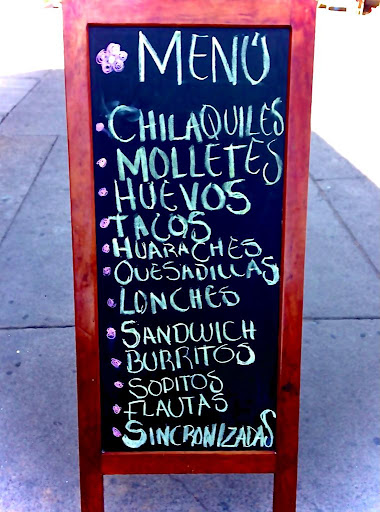 MENÚ
CHILAQUILES
MOLLETES
HUEVOS
TACOS
HUARACHES
QUESADILLAS
LONCHES
SANDWICH
BURRITOS
SOPITOS
FLAUTAS
SINCRONIZADAS